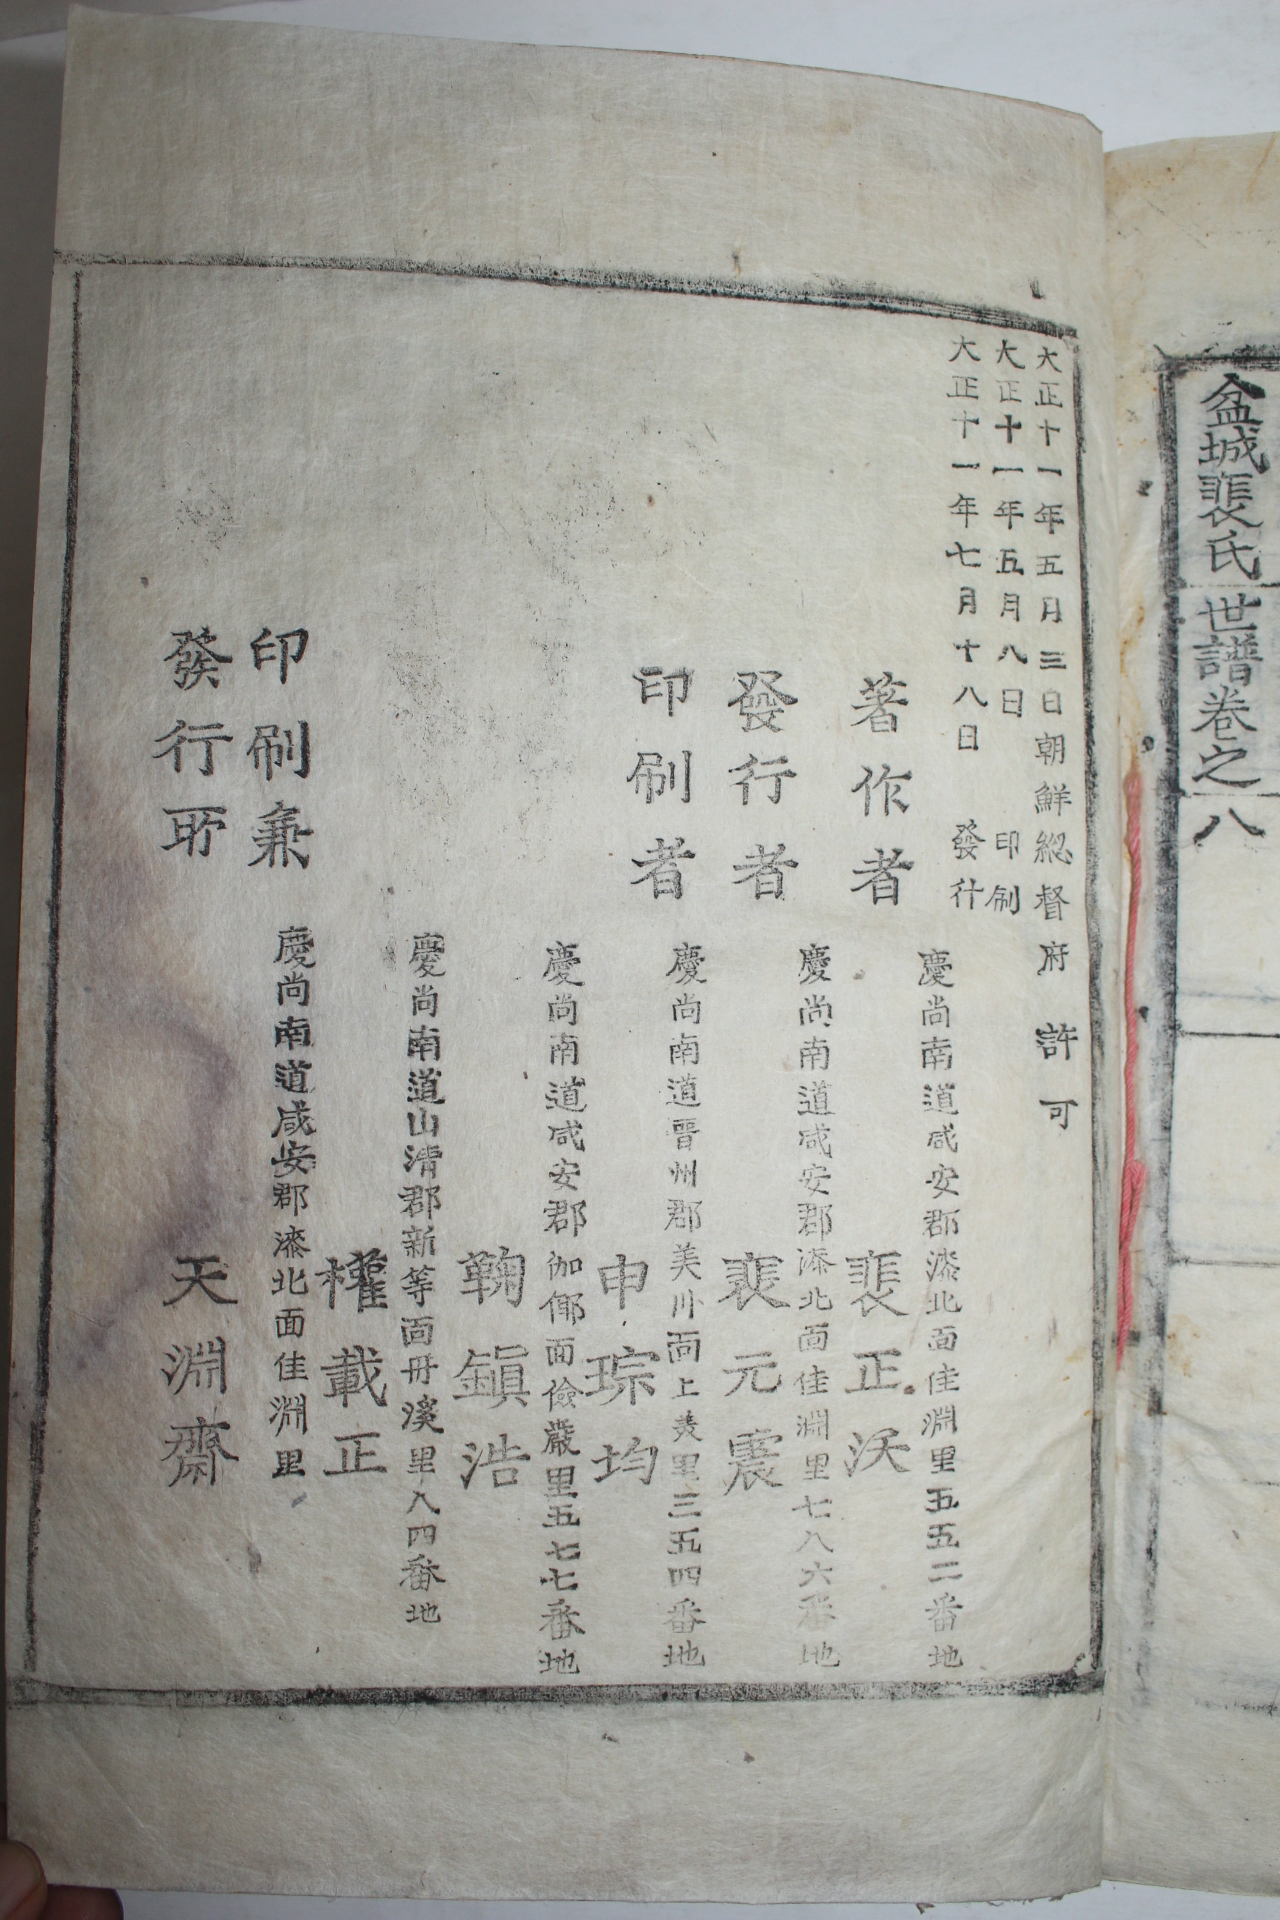 盆城裴氏世譜卷之八
大正十一年五月三日朝鮮總督府許可
大正十一年五月八日印刷
大正十一年七月十八日發行
慶尚南道咸安郡漆北面佳淵里五五二番地
著作者 裴正沃
慶尚南道咸安郡漆北面佳淵里七八六番地
發行者 裴元震
慶尚南道晋州郡美川面上美里三五四番地
印刷者 申琮均
慶尚南道咸安郡伽倻面儉嚴里五七七番地
鞠鎭浩
慶尚南道山淸郡新等面丹溪里八四番地
權載正
慶尚南道咸安郡漆北面佳淵里
印刷兼
發行所 天淵齋